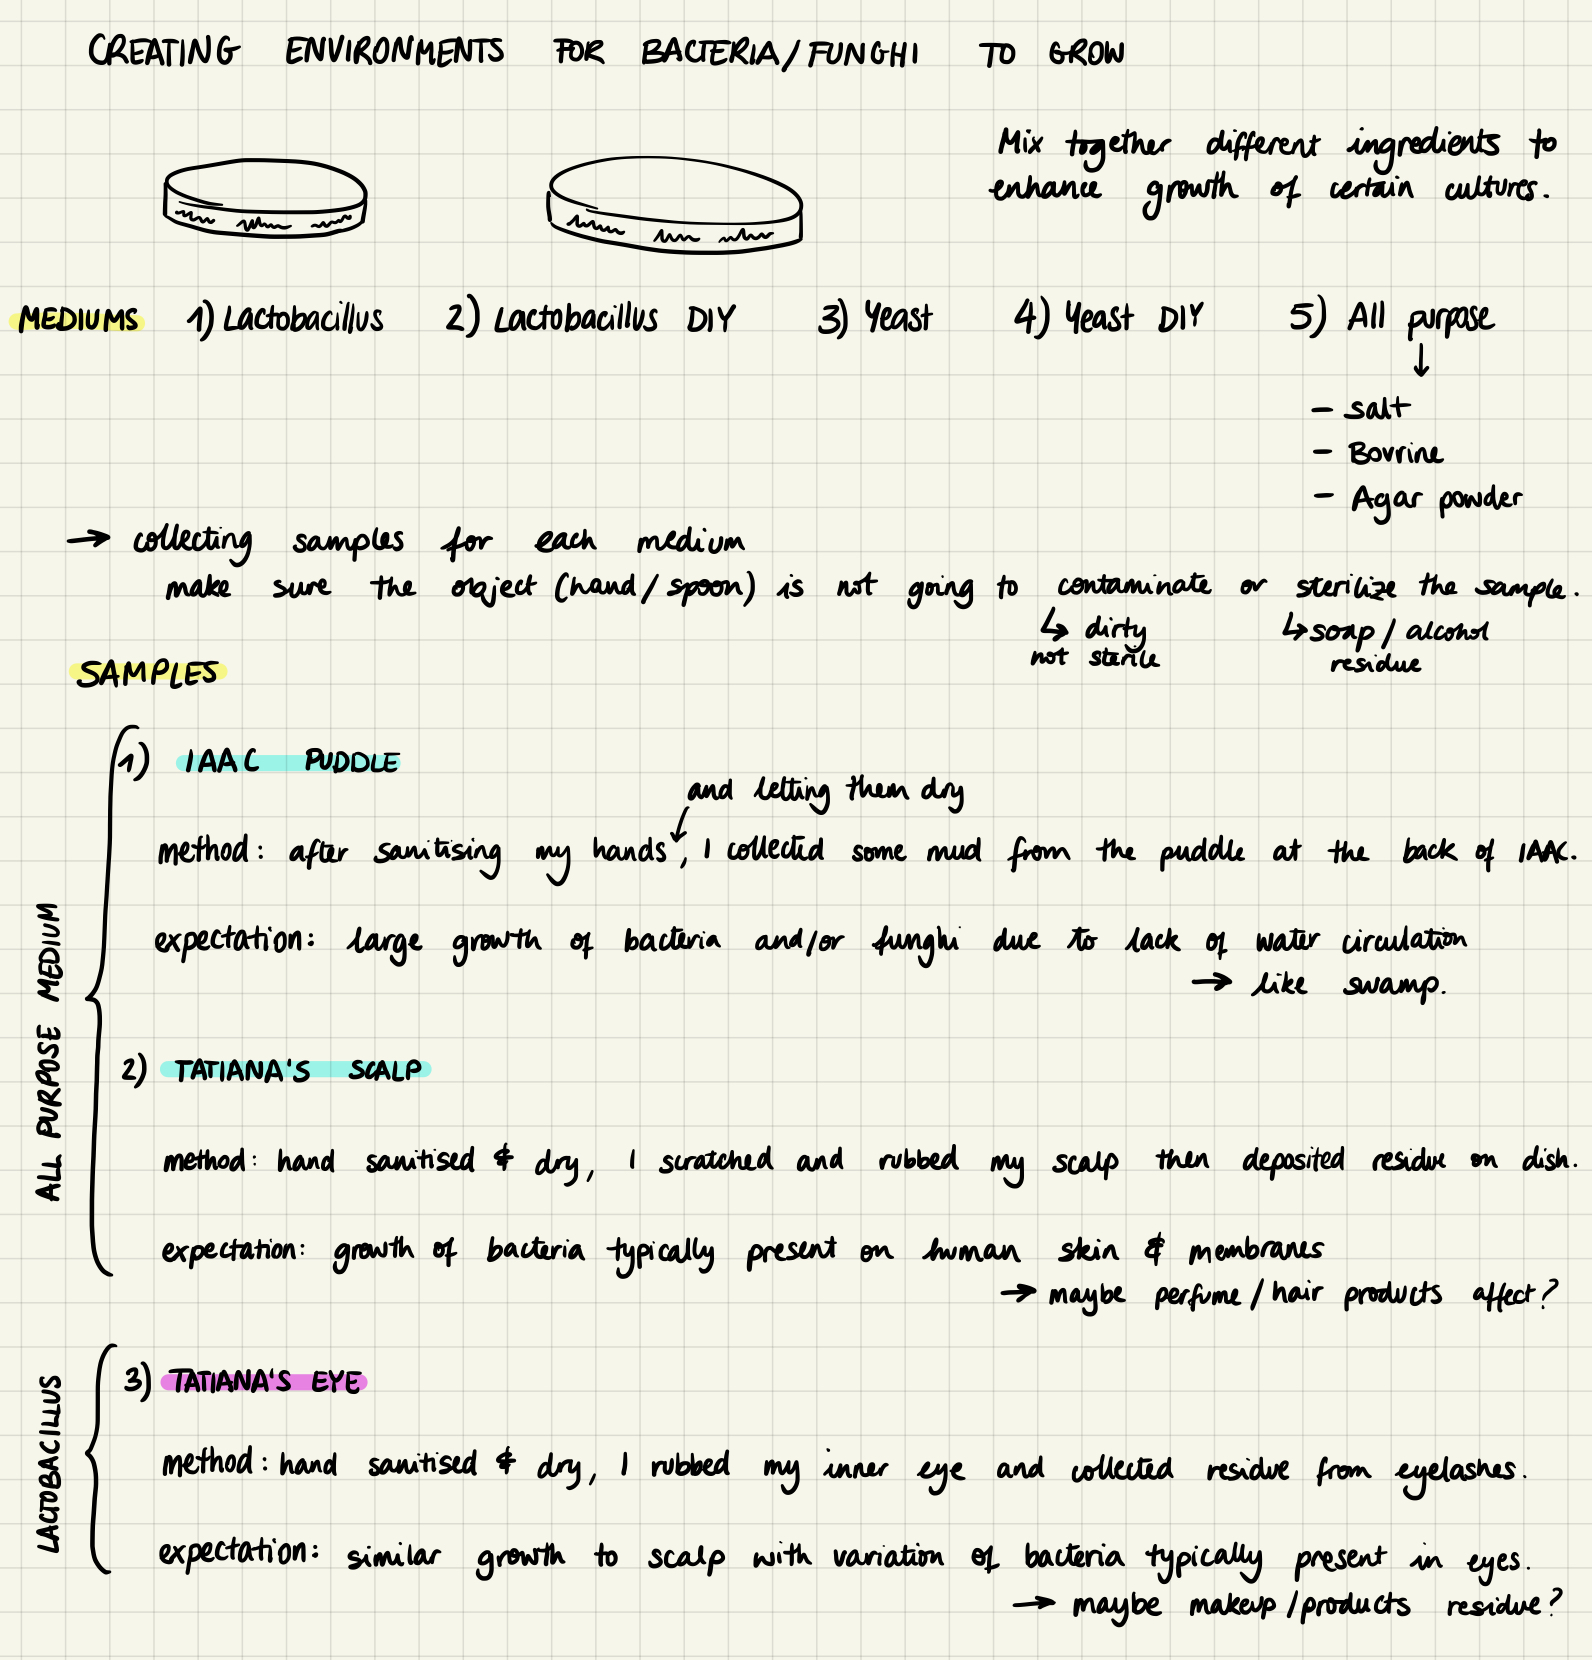 CREATING ENVIRONMENTS FOR BACTERIA/FUNGHI TO GROW
Mix together different ingredients to
enhance growth of certain cultures.
MEDIUMS 1) Lactobacillus 2) Lactobacillus DIY 3) Yeast 4) Yeast DIY 5) All purpose
↓
- salt
- Bovrine
- Agar powder
→ collecting samples for each medium
make sure the object (hand/spoon) is not going to contaminate or sterilize the sample.
↳ dirty
not sterile
↳ soap / alcohol
residue
SAMPLES
ALL PURPOSE MEDIUM
1) IAAC PUDDLE
and letting them dry
method: after sanitising my hands, I collected some mud from the puddle at the back of IAAC.
expectation: large growth of bacteria and/or funghi due to lack of water circulation
→ like swamp.
2) TATIANA'S SCALP
method: hand sanitised & dry, I scratched and rubbed my scalp then deposited residue on dish.
expectation: growth of bacteria typically present on human skin & membranes
→ maybe perfume/hair products affect?
LACTOBACILLUS
3) TATIANA'S EYE
method: hand sanitised & dry, I rubbed my inner eye and collected residue from eyelashes.
expectation: similar growth to scalp with variation of bacteria typically present in eyes.
→ maybe makeup/products residue?